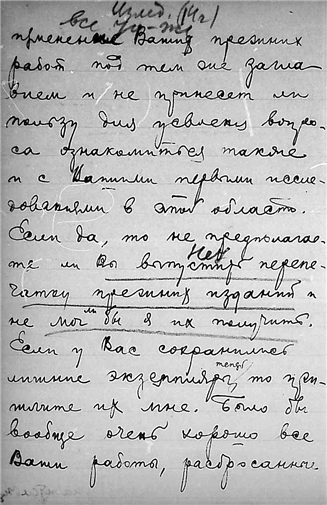 Излед. (Чг)
все
применение Ваших прежних
работ под тем же загла
вием и не принесет ли
пользу для усвоения вопро-
са ознакомиться также
и с Вашими первыми иссле-
дованиями в этой области.
Если да, то не предполагае-
те ли Вы выпустить перепе-
Нет
чатку прежних изданий и
не мог ли бы я их получить.
Если у Вас сохранились
лишние экземпляры, то при-
шлите их мне. Было бы
вообще очень хорошо все
Ваши работы, разбросанные